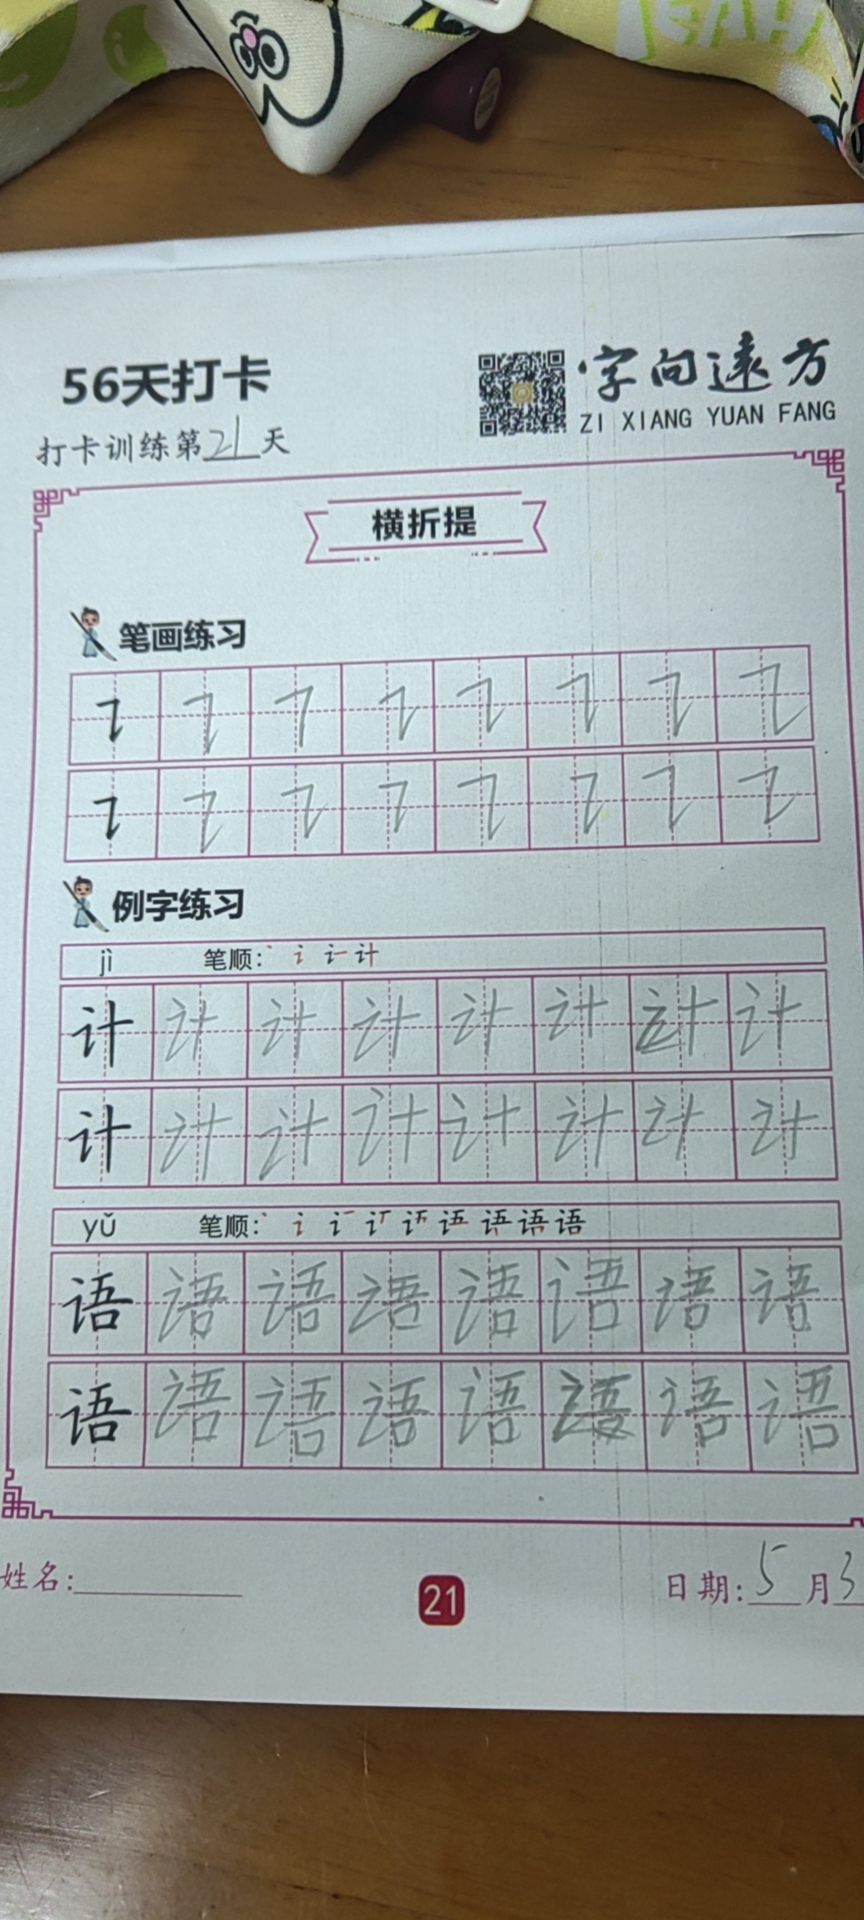 56天打卡
字向远方
ZI XIANG YUAN FANG
打卡训练第21天
横折提
笔画练习
例字练习
jì 笔顺:
计 计 计 计 计 计 计 计
计 计 计 计 计 计 计 计
yǔ 笔顺: 语
语 语 语 语 语 语 语 语
语 语 语 语 语 语 语 语
姓名:
21
日期:5月3